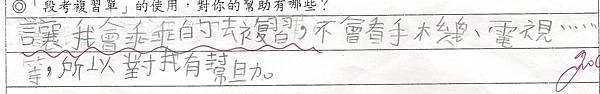 ◎「段考複習單」的使用,對你的幫助有哪些?
讓我會乖乖的去複習,不會看手机、電視……
等,所以對我有幫助。